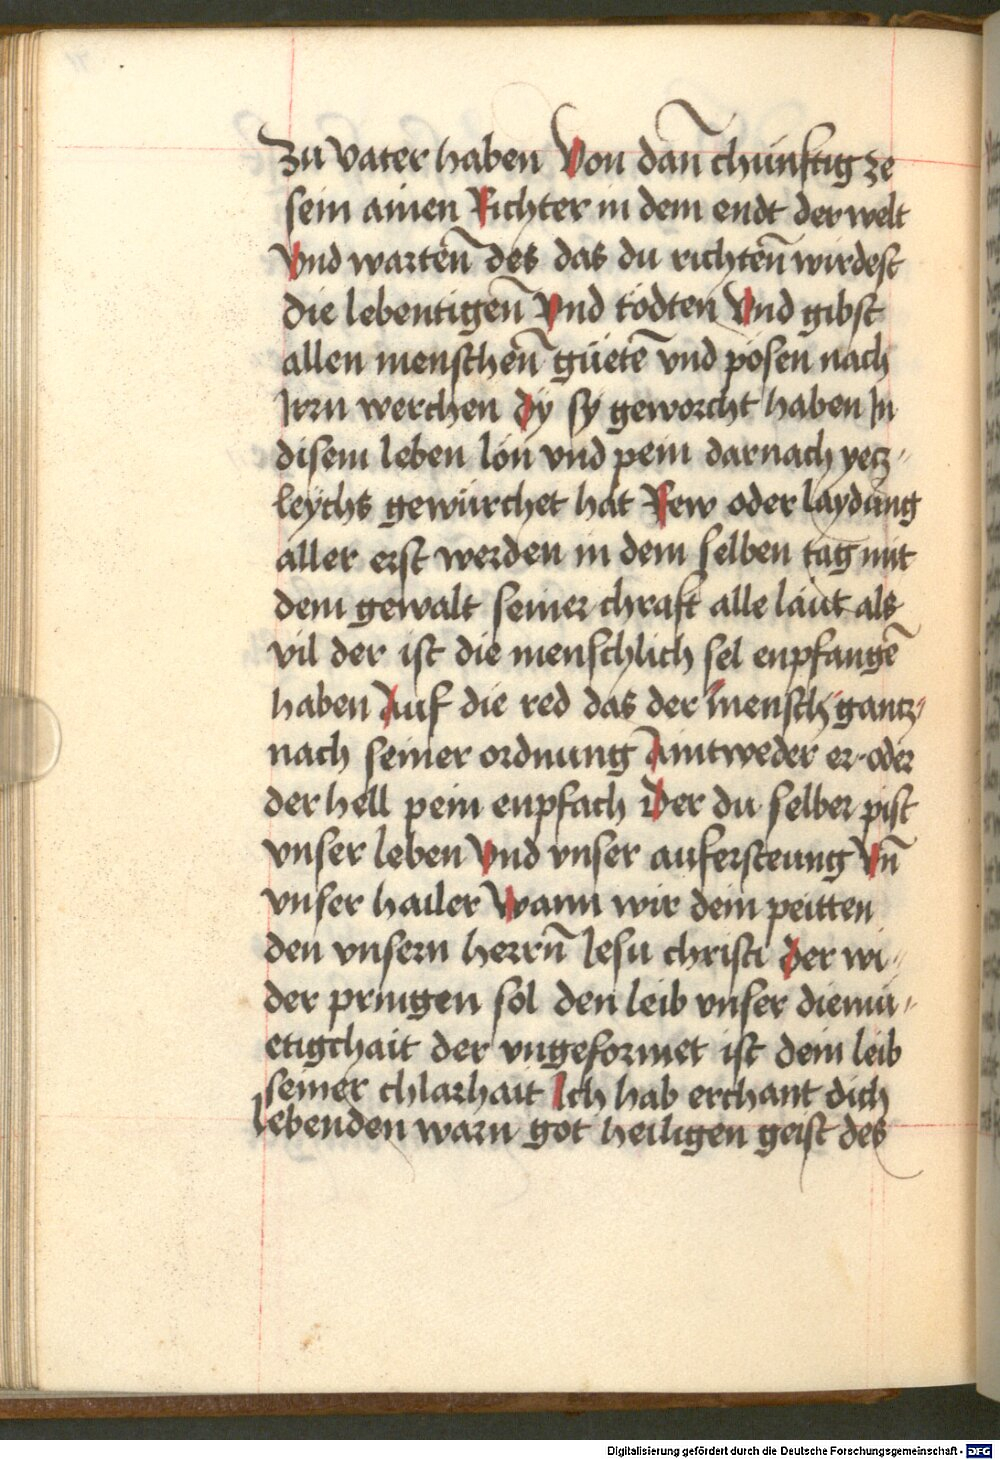 Zu vater haben Von dan̄ chunftig ze
sein ainen Richter in dem endt der welt
Vnd warten̄ des das du richten̄ wirdest
die lebentigen̄ Vnd tödten Vnd gibst
allen menschen̄ güetē vnd pösen nach
Irrn werchen dÿ sÿ geworcht haben In
disem leben lon vnd pein darnach yecz-
leychs gewürchet hat Rew oder laydung
aller erst werden in dem selben tag mit
dem gewalt seiner chraft alle läut als
vil der ist die menschlich sel enpfangē
haben Auf die red das der mensch gancz
nach seiner ordnung Aintweder er oder
der hell pein enpfach Der du selber pist
vnser leben Vnd vnser aufersteung Vn̄
vnser hailer Wann wir dein peitten
den vnsern herrn̄ Iesu christi der wi-
der pringen sol den leib vnser diemü-
etigchait der vngeformet ist dein leib
seiner chlarhait Ich hab erchant dich
lebenden warn got heiligen geist des
Digitalisierung gefördert durch die Deutsche Forschungsgemeinschaft - DFG